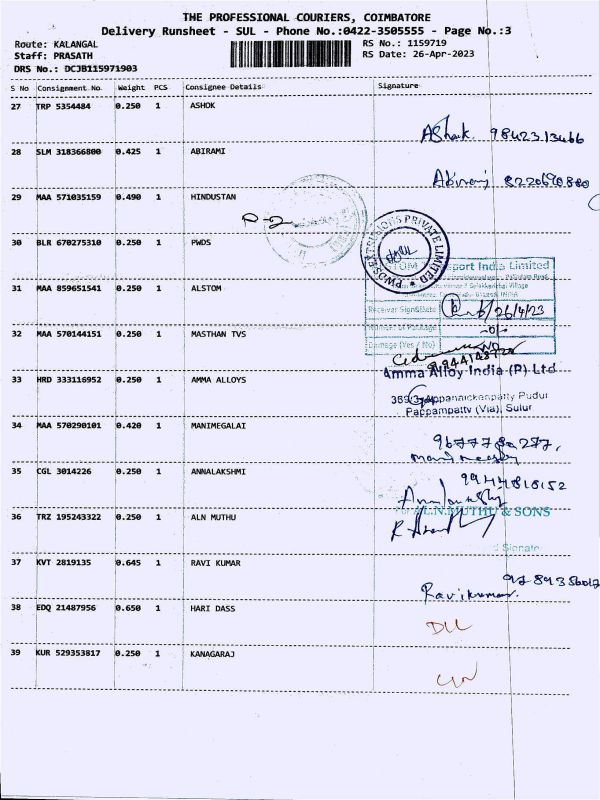 THE PROFESSIONAL COURIERS, COIMBATORE
Delivery Runsheet - SUL - Phone No.:0422-3505555 - Page No.:3
Route: KALANGAL
RS No.: 1159719
Staff: PRASATH
RS Date: 26-Apr-2023
DRS No.: DCJB115971903
S No Consignment No Weight PCS Consignee Details Signature
27 TRP 5354484 0.250 1 ASHOK
Ashok 9842313466
28 SLM 318366800 0.425 1 ABIRAMI
Abirami 8220690880
29 MAA 571035159 0.490 1 HINDUSTAN
30 BLR 670275310 0.250 1 PWDS
PWDS EXTRUSIONS PRIVATE LIMITED
port India Limited
31 MAA 859651541 0.250 1 ALSTOM
Receiver Sign&Date 26/4/23
32 MAA 570144151 0.250 1 MASTHAN TVS
Damage (Yes / No) NO
33 HRD 333116952 0.250 1 AMMA ALLOYS
Amma Alloy India (P) Ltd
Pappampatty (Via), Sulur
34 MAA 570290101 0.420 1 MANIMEGALAI
35 CGL 3014226 0.250 1 ANNALAKSHMI
9944818152
36 TRZ 195243322 0.250 1 ALN MUTHU
For AL.N.MUTHU & SONS
37 KVT 2819135 0.645 1 RAVI KUMAR
Ravikumar.
38 EDQ 21487956 0.650 1 HARI DASS
39 KUR 529353817 0.250 1 KANAGARAJ